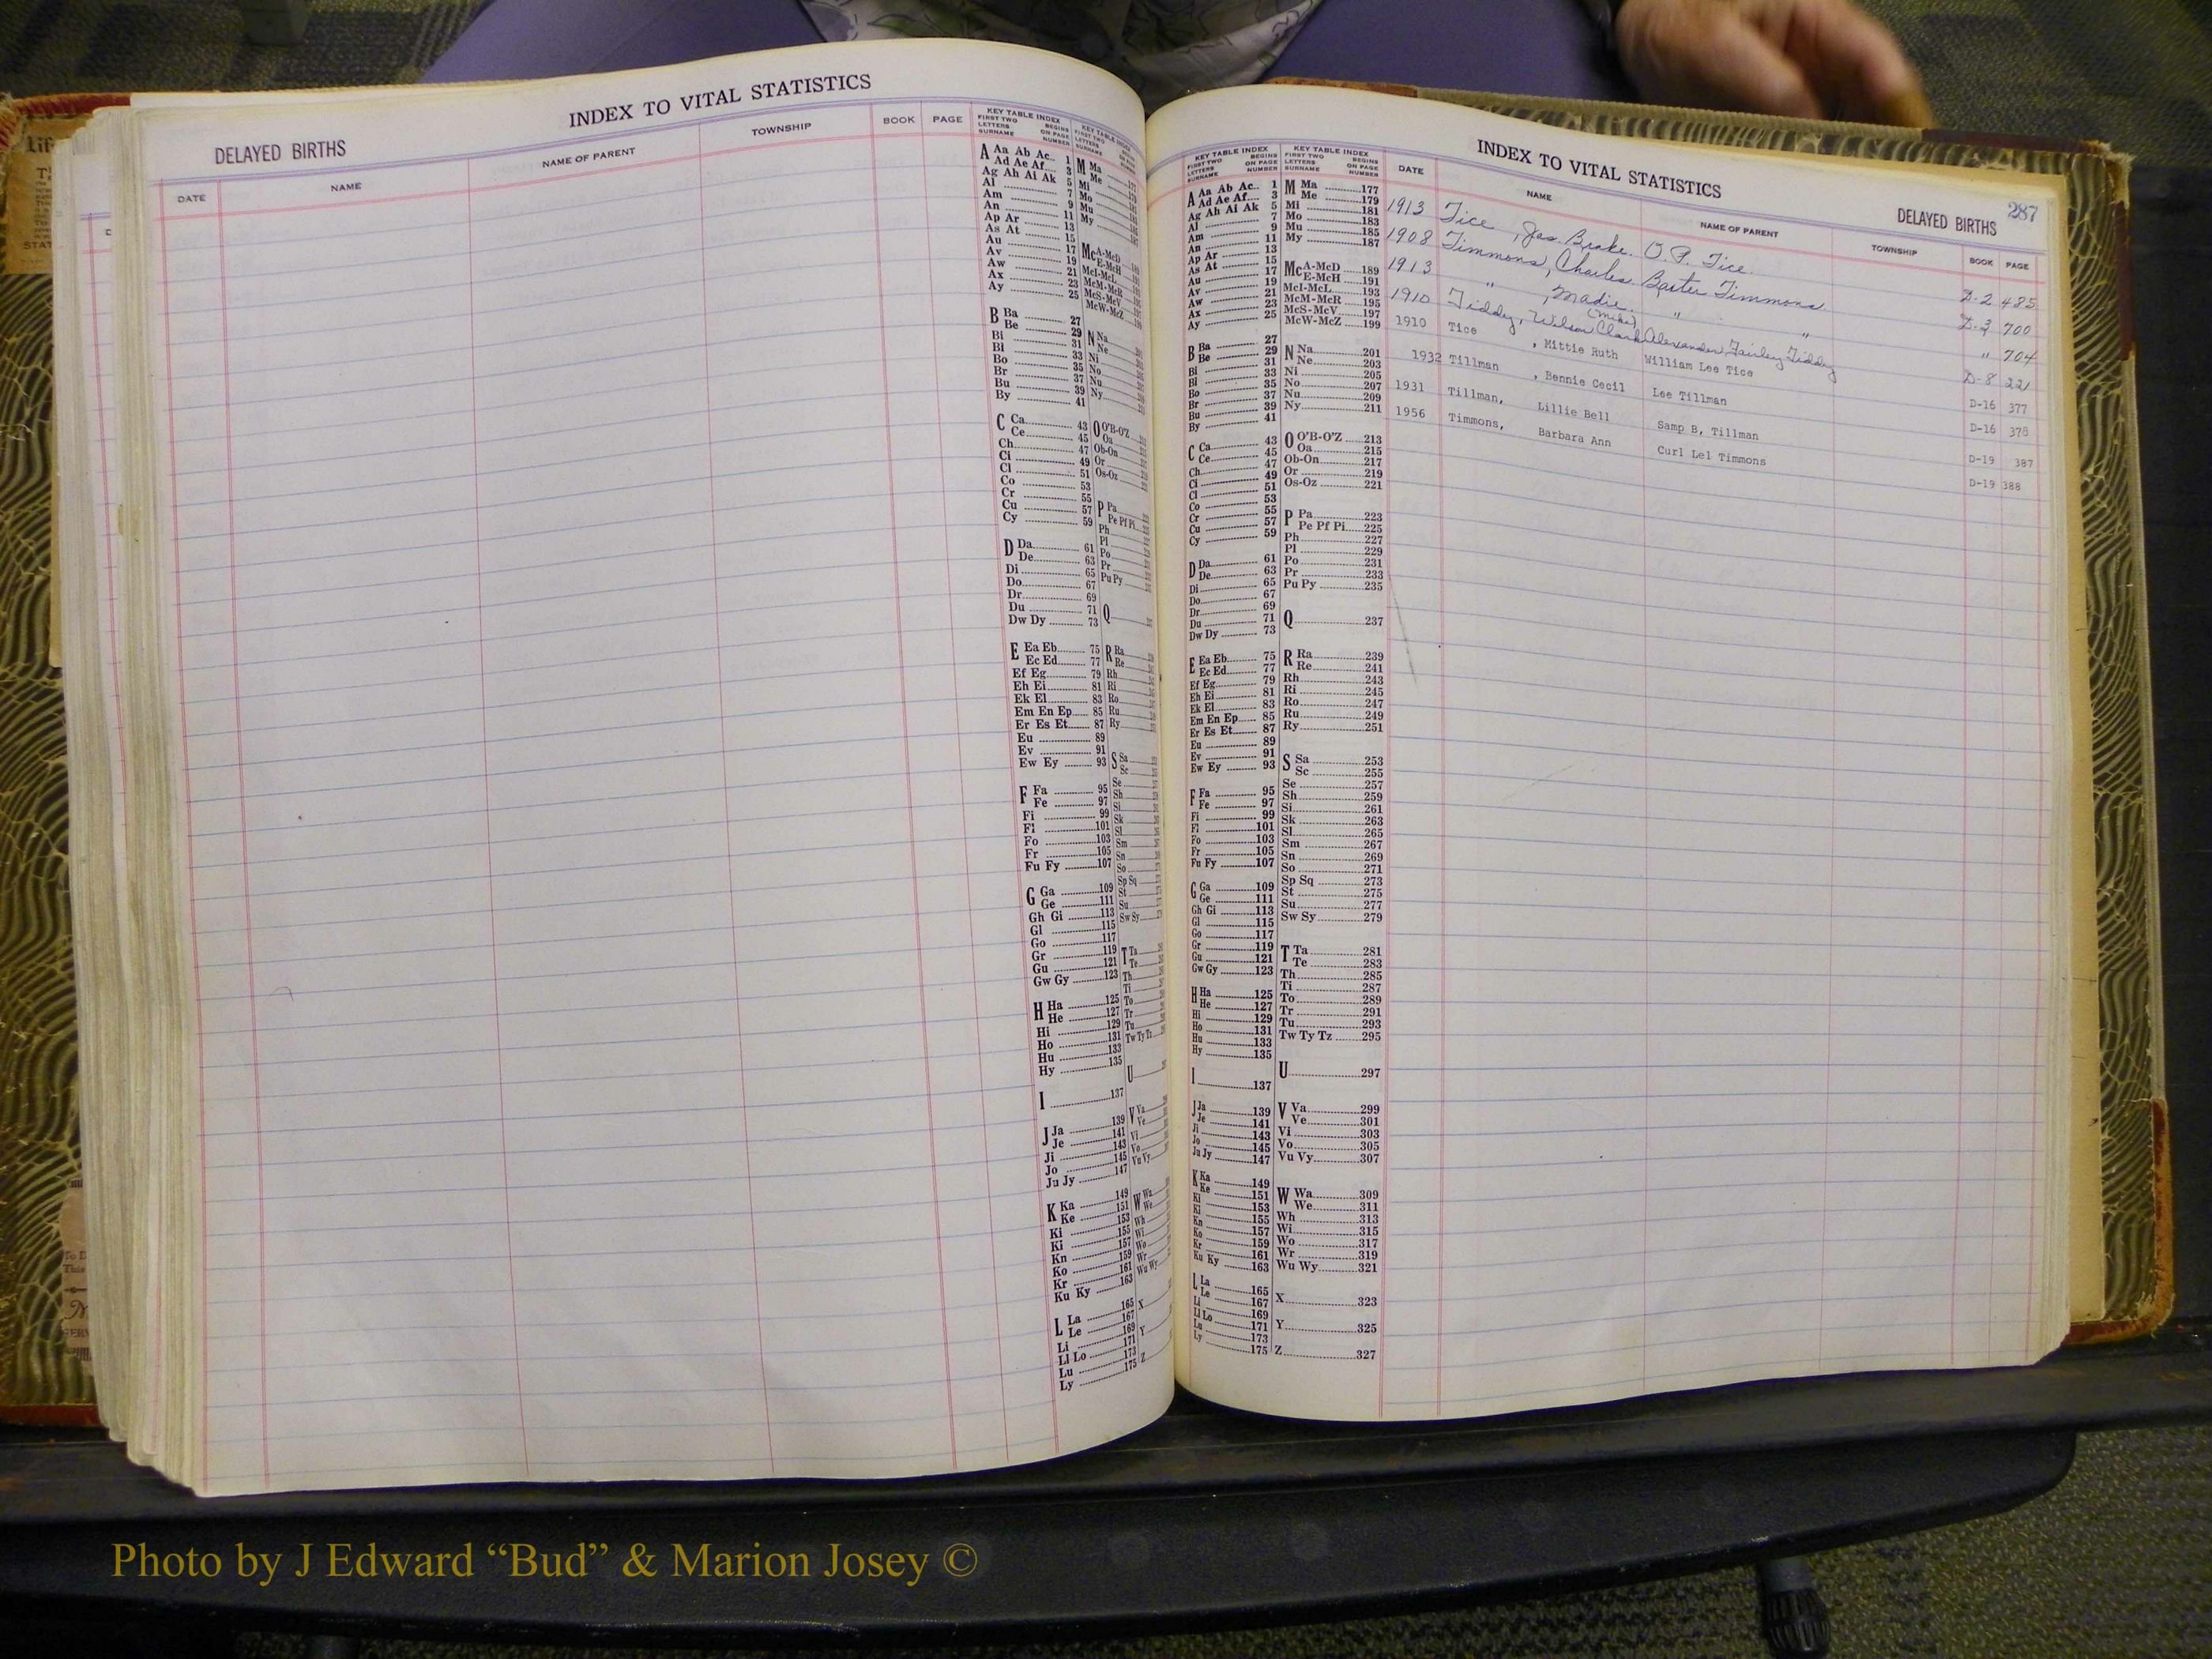 INDEX TO VITAL STATISTICS
DELAYED BIRTHS
DATE NAME NAME OF PARENT TOWNSHIP BOOK PAGE
KEY TABLE INDEX
FIRST TWO LETTERS SURNAME BEGINS ON PAGE NUMBER
A Aa Ab Ac 1
Ad Ae Af 3
Ag Ah Ai Ak 5
Al 7
Am 9
An 11
Ap Ar 13
As At 15
Au 17
Av 19
Aw 21
Ax 23
Ay 25
B Ba 27
Be 29
Bi 31
Bl 33
Bo 35
Br 37
Bu 39
By 41
C Ca 43
Ce 45
Ch 47
Ci 49
Cl 51
Co 53
Cr 55
Cu 57
Cy 59
D Da 61
De 63
Di 65
Do 67
Dr 69
Du 71
Dw Dy 73
E Ea Eb 75
Ec Ed 77
Ef Eg 79
Eh Ei 81
Ek El 83
Em En Ep 85
Er Es Et 87
Eu 89
Ev 91
Ew Ey 93
F Fa 95
Fe 97
Fi 99
Fl 101
Fo 103
Fr 105
Fu Fy 107
G Ga 109
Ge 111
Gh Gi 113
Gl 115
Go 117
Gr 119
Gu 121
Gw Gy 123
H Ha 125
He 127
Hi 129
Ho 131
Hu 133
Hy 135
I 137
J Ja 139
Je 141
Ji 143
Jo 145
Ju Jy 147
K Ka 149
Ke 151
Ki 153
Kl 155
Kn 157
Ko 159
Kr 161
Ku Ky 163
L La 165
Le 167
Li 169
Ll Lo 171
Lu 173
Ly 175
INDEX TO VITAL STATISTICS
DELAYED BIRTHS
287
KEY TABLE INDEX
FIRST TWO LETTERS SURNAME BEGINS ON PAGE NUMBER
M Ma 177
Me 179
Mi 181
Mo 183
Mu 185
My 187
McA-McD 189
E-McH 191
McI-McL 193
McM-McR 195
McS-McV 197
McW-McZ 199
N Na 201
Ne 203
Ni 205
No 207
Nu 209
Ny 211
O O'B-O'Z 213
Oa 215
Ob-On 217
Or 219
Os-Oz 221
P Pa 223
Pe Pf Pi 225
Ph 227
Pl 229
Po 231
Pr 233
Pu Py 235
Q 237
R Ra 239
Re 241
Rh 243
Ri 245
Ro 247
Ru 249
Ry 251
S Sa 253
Sc 255
Se 257
Sh 259
Si 261
Sk 263
Sl 265
Sm 267
Sn 269
So 271
Sp Sq 273
St 275
Su 277
Sw Sy 279
T Ta 281
Te 283
Th 285
Ti 287
To 289
Tr 291
Tu 293
Tw Ty Tz 295
U 297
V Va 299
Ve 301
Vi 303
Vo 305
Vu Vy 307
W Wa 309
We 311
Wh 313
Wi 315
Wo 317
Wr 319
Wu Wy 321
X 323
Y 325
Z 327
DATE NAME NAME OF PARENT TOWNSHIP BOOK PAGE
1913 Tice, Jas. Brake. O. P. Tice. D-2 485
1908 Timmons, Charles Baxter Timmons. D-3 700
1913 " , Madie. " " " 704
(Mike)
1910 Tiddy, Wilson Clark Alexander Fairley Tiddy D-8 221
1910 Tice , Mittie Ruth William Lee Tice D-16 377
1932 Tillman , Bennie Cecil Lee Tillman D-16 378
1931 Tillman, Lillie Bell Samp B, Tillman D-19 387
1956 Timmons, Barbara Ann Curl Lel Timmons D-19 388
Photo by J Edward “Bud” & Marion Josey ©